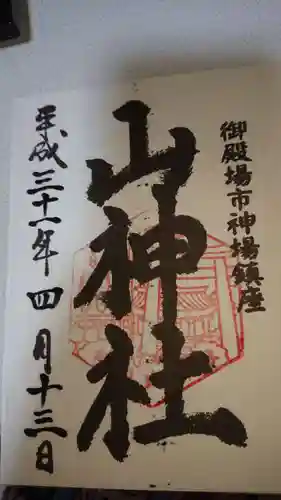 御殿場市神場鎮座
山神社
平成三十一年四月十三日